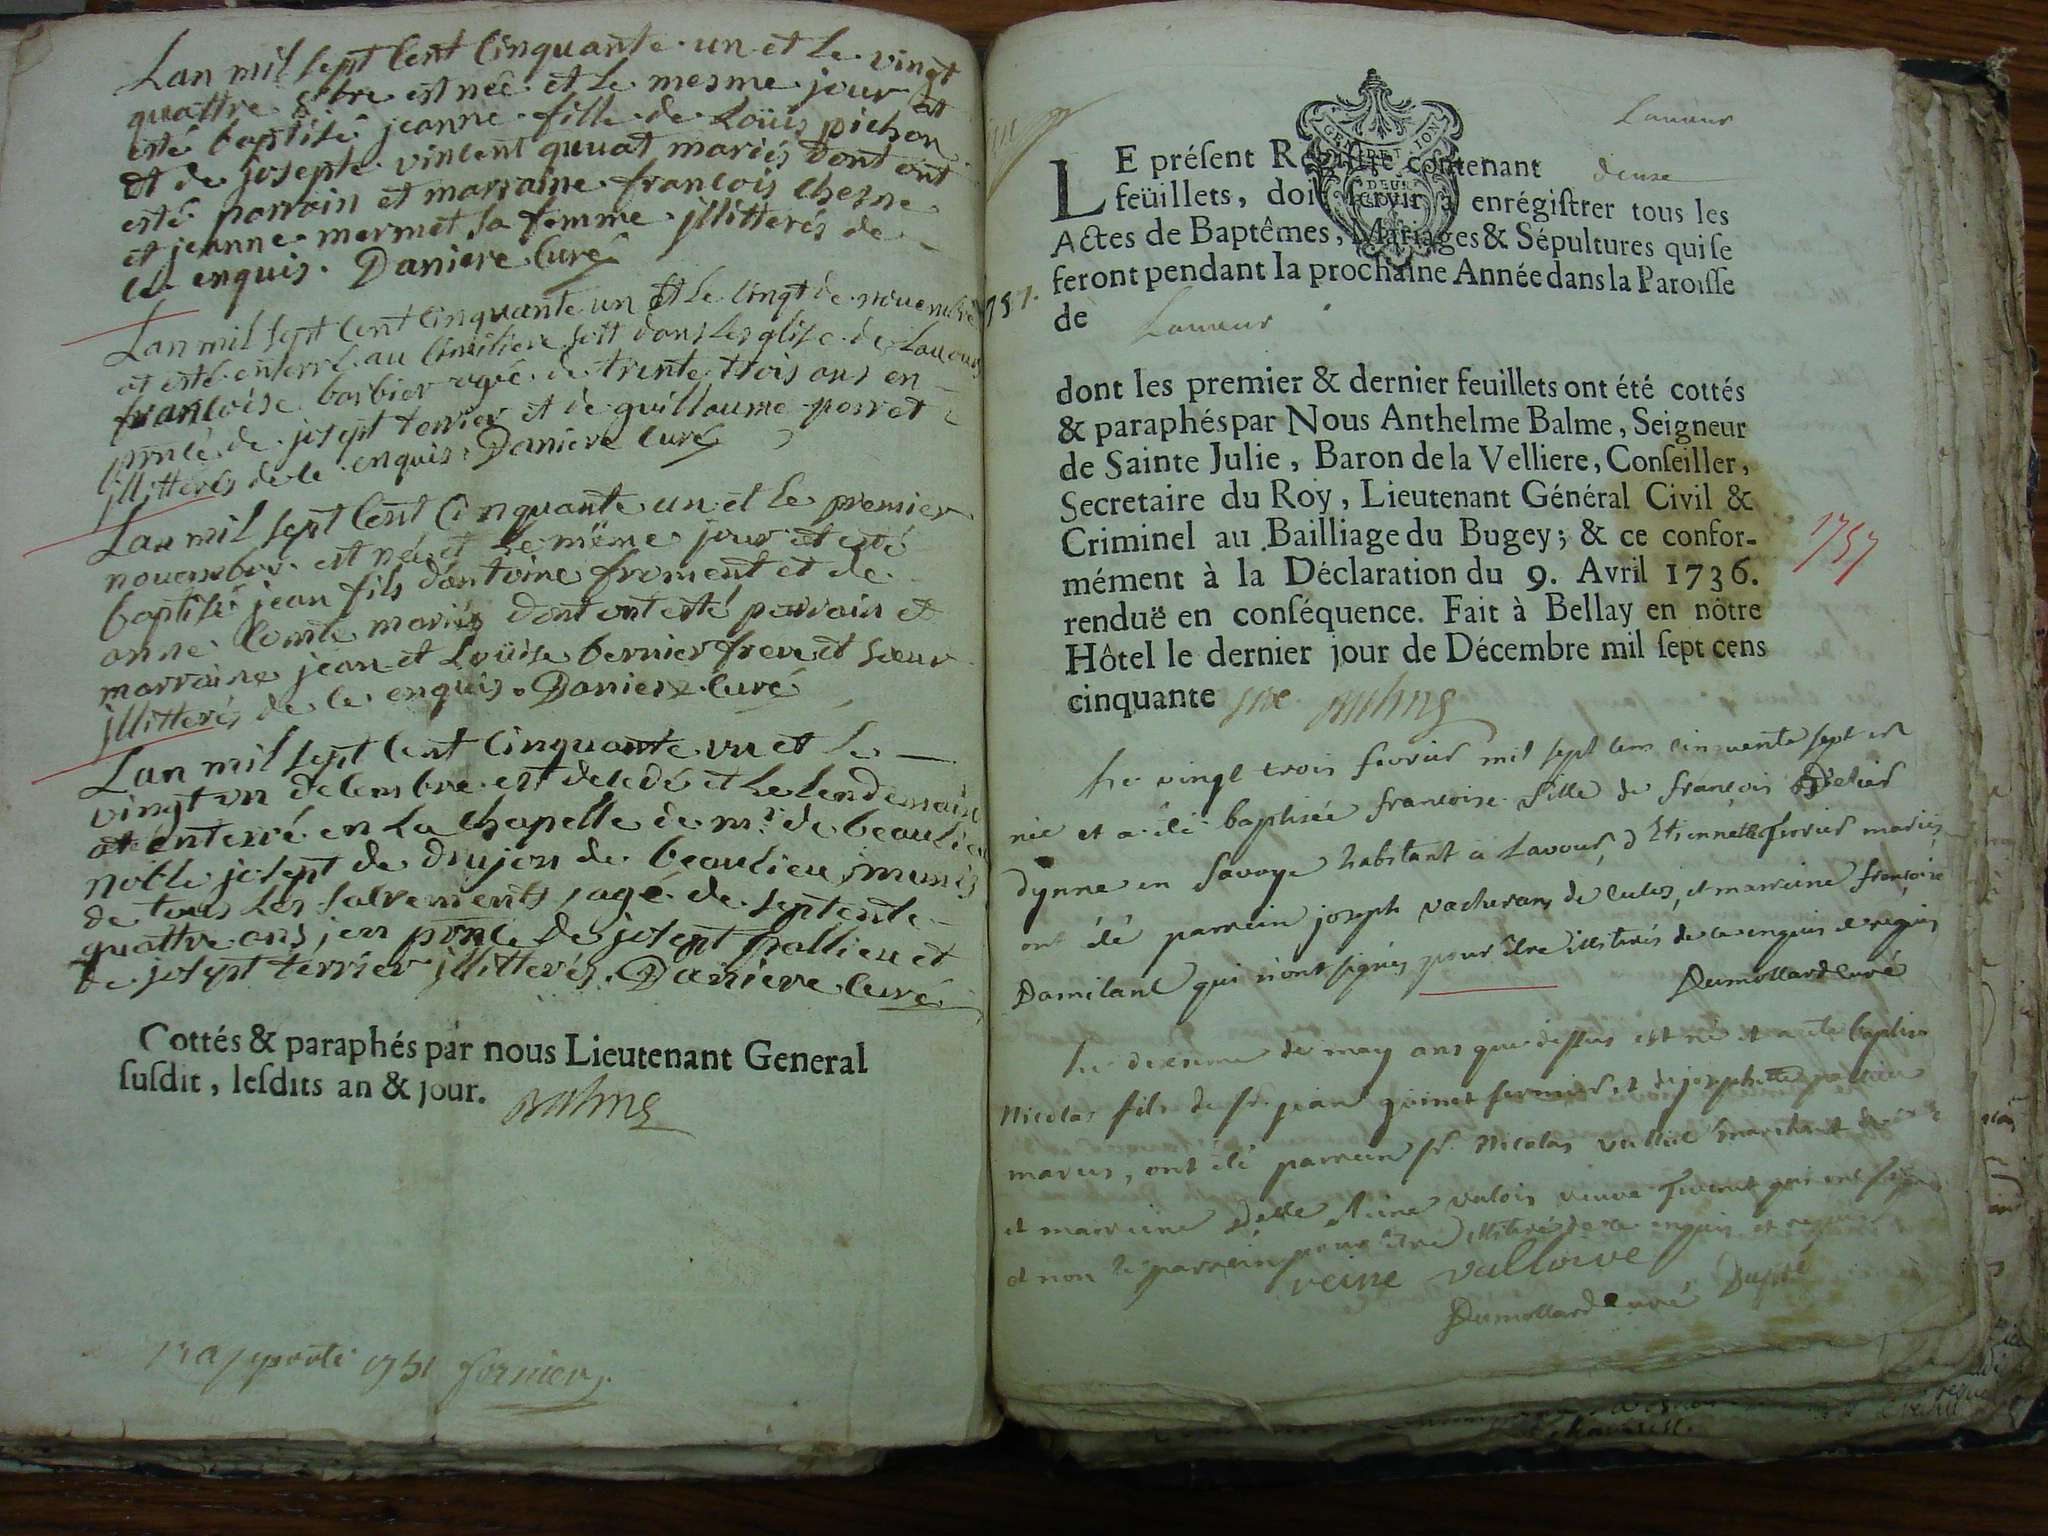 Lan mil sept Cent Cinquante un et le vingt
quattre 8bre est née et le mesme jour at
esté baptisé jeanne fille de Loüis pichon
et de josepte vincent quuat mariés dont ont
esté parrain et marraine francois Chesne
et jeanne mermet sa femme jllitterés de
Ce enquis. Daniere Curé
Lan mil sept Cent Cinquante un et le vingt de novembre
at esté enterré au Cimitiere soit dans Leglise de Lavours
francoise barbier agée de trente trois ans en
pnce de josept terrier et de guillaume perret
jllitterés de Ce enquis. Daniere Curé
Lan mil sept Cent Cinquante un et le premier
novembre est né et Le même jour et esté
baptisé jean fils dantoine froment et de
anne Comte mariés dont ont esté parrain et
marraine jean et Loüise bernier frere et sœur
jllitterés de Ce enquis. Daniere Curé
Lan mil sept Cent Cinquante vn et le
vingt vn decembre est decedé et Le Lendemain
at enterré en La Chapelle de mr. de beaulieu
noble josept de drujon de beaulieu munis
de tous Les sacrements, agé de septente
quattre ans, en pnce de josept pallieu et
de josept terrier jllitterés. Daniere Curé
Cottés & paraphés par nous Lieutenant General
susdit, lesdits an & jour. Balme
Rapporté 1751 fornier
Lavour
GEN DET ION
DEUX
LE présent Registre contenant deux
feüillets, doit servir à enrégistrer tous les
Actes de Baptêmes, Mariages & Sépultures qui se
feront pendant la prochaine Année dans la Paroisse
de Lavour
dont les premier & dernier feuillets ont été cottés
& paraphés par Nous Anthelme Balme, Seigneur
de Sainte Julie, Baron de la Velliere, Conseiller,
Secretaire du Roy, Lieutenant Général Civil &
Criminel au Bailliage du Bugey; & ce confor-
mément à la Déclaration du 9. Avril 1736.
renduë en conséquence. Fait à Bellay en nôtre
Hôtel le dernier jour de Décembre mil sept cens
cinquante six Balme
1757
Le vingt trois fevrier mil sept cens cinquante sept est
née et a été baptisée francoise fille de francois
dynne en Savoye habitant a Lavour, d'Etiennette ferrier mariés,
ont été parrein joseph vacheran de Culos, et marreine francoise
Damilanl qui n'ont signés pour être illiterés de ce enquis et requis
Dumollard Curé
Le deuxieme de may ans que dessus est né et a ete baptisé
Nicolas fils de sr. jean guinet fermier, et de josephette pallieu
mariés, ont été parrein sr. Nicolas vallié marchand
et marreine Delle Reine valois veuve guinet qui ont signé
et non le parrein pour être illiterés de ce enquis et requis
reine valloive
Dumollard Curé